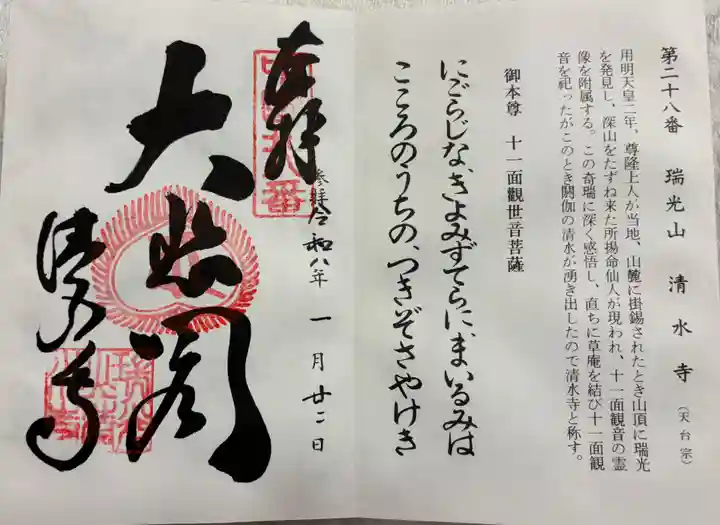 第二十八番　瑞光山　清水寺（天台宗）
用明天皇二年、尊隆上人が当地、山麓に掛錫されたとき山頂に瑞光
を発見し、深山をたずね来た所揚命仙人が現われ、十一面観音の霊
像を附属する。この奇瑞に深く感悟し、直ちに草庵を結び十一面観
音を祀ったがこのとき閼伽の清水が湧き出したので清水寺と称す。
御本尊　十一面觀世音菩薩
にごらじな、きよみずてらに、まいるみは
こころのうちの、つきぞさやけき
奉拝
参拝 令和八年　一月　廿二日
大悲閣
清水寺